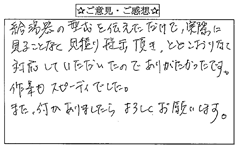 ☆ご意見・ご感想☆
給湯器の型式を伝えただけで、実際に
見ることなく見積り提示頂き、とどこおりなく
対応していただいたのでありがたかったです。
作業もスピーディでした。
また、何かありましたらよろしくお願いします。